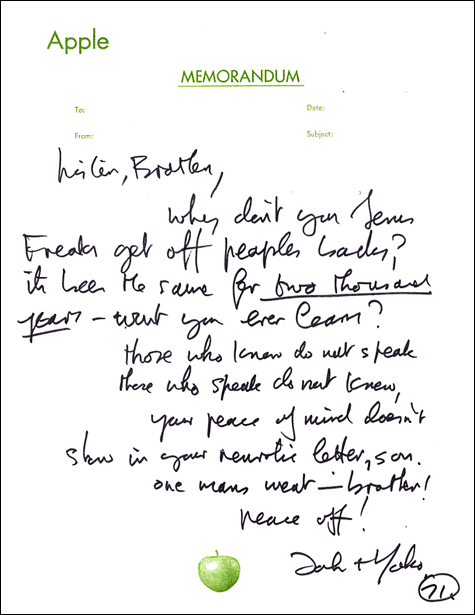 Apple
MEMORANDUM
To: Date:
From: Subject:
Listen, Brother,
why don't you Jesus
Freaks get off peoples backs?
its been the same for two thousand
years - wont you ever learn?
those who know do not speak
those who speak do not know,
your peace of mind doesn't
show in your neurotic letter, son.
one mans meat — brother!
peace off!
John + Yoko
71